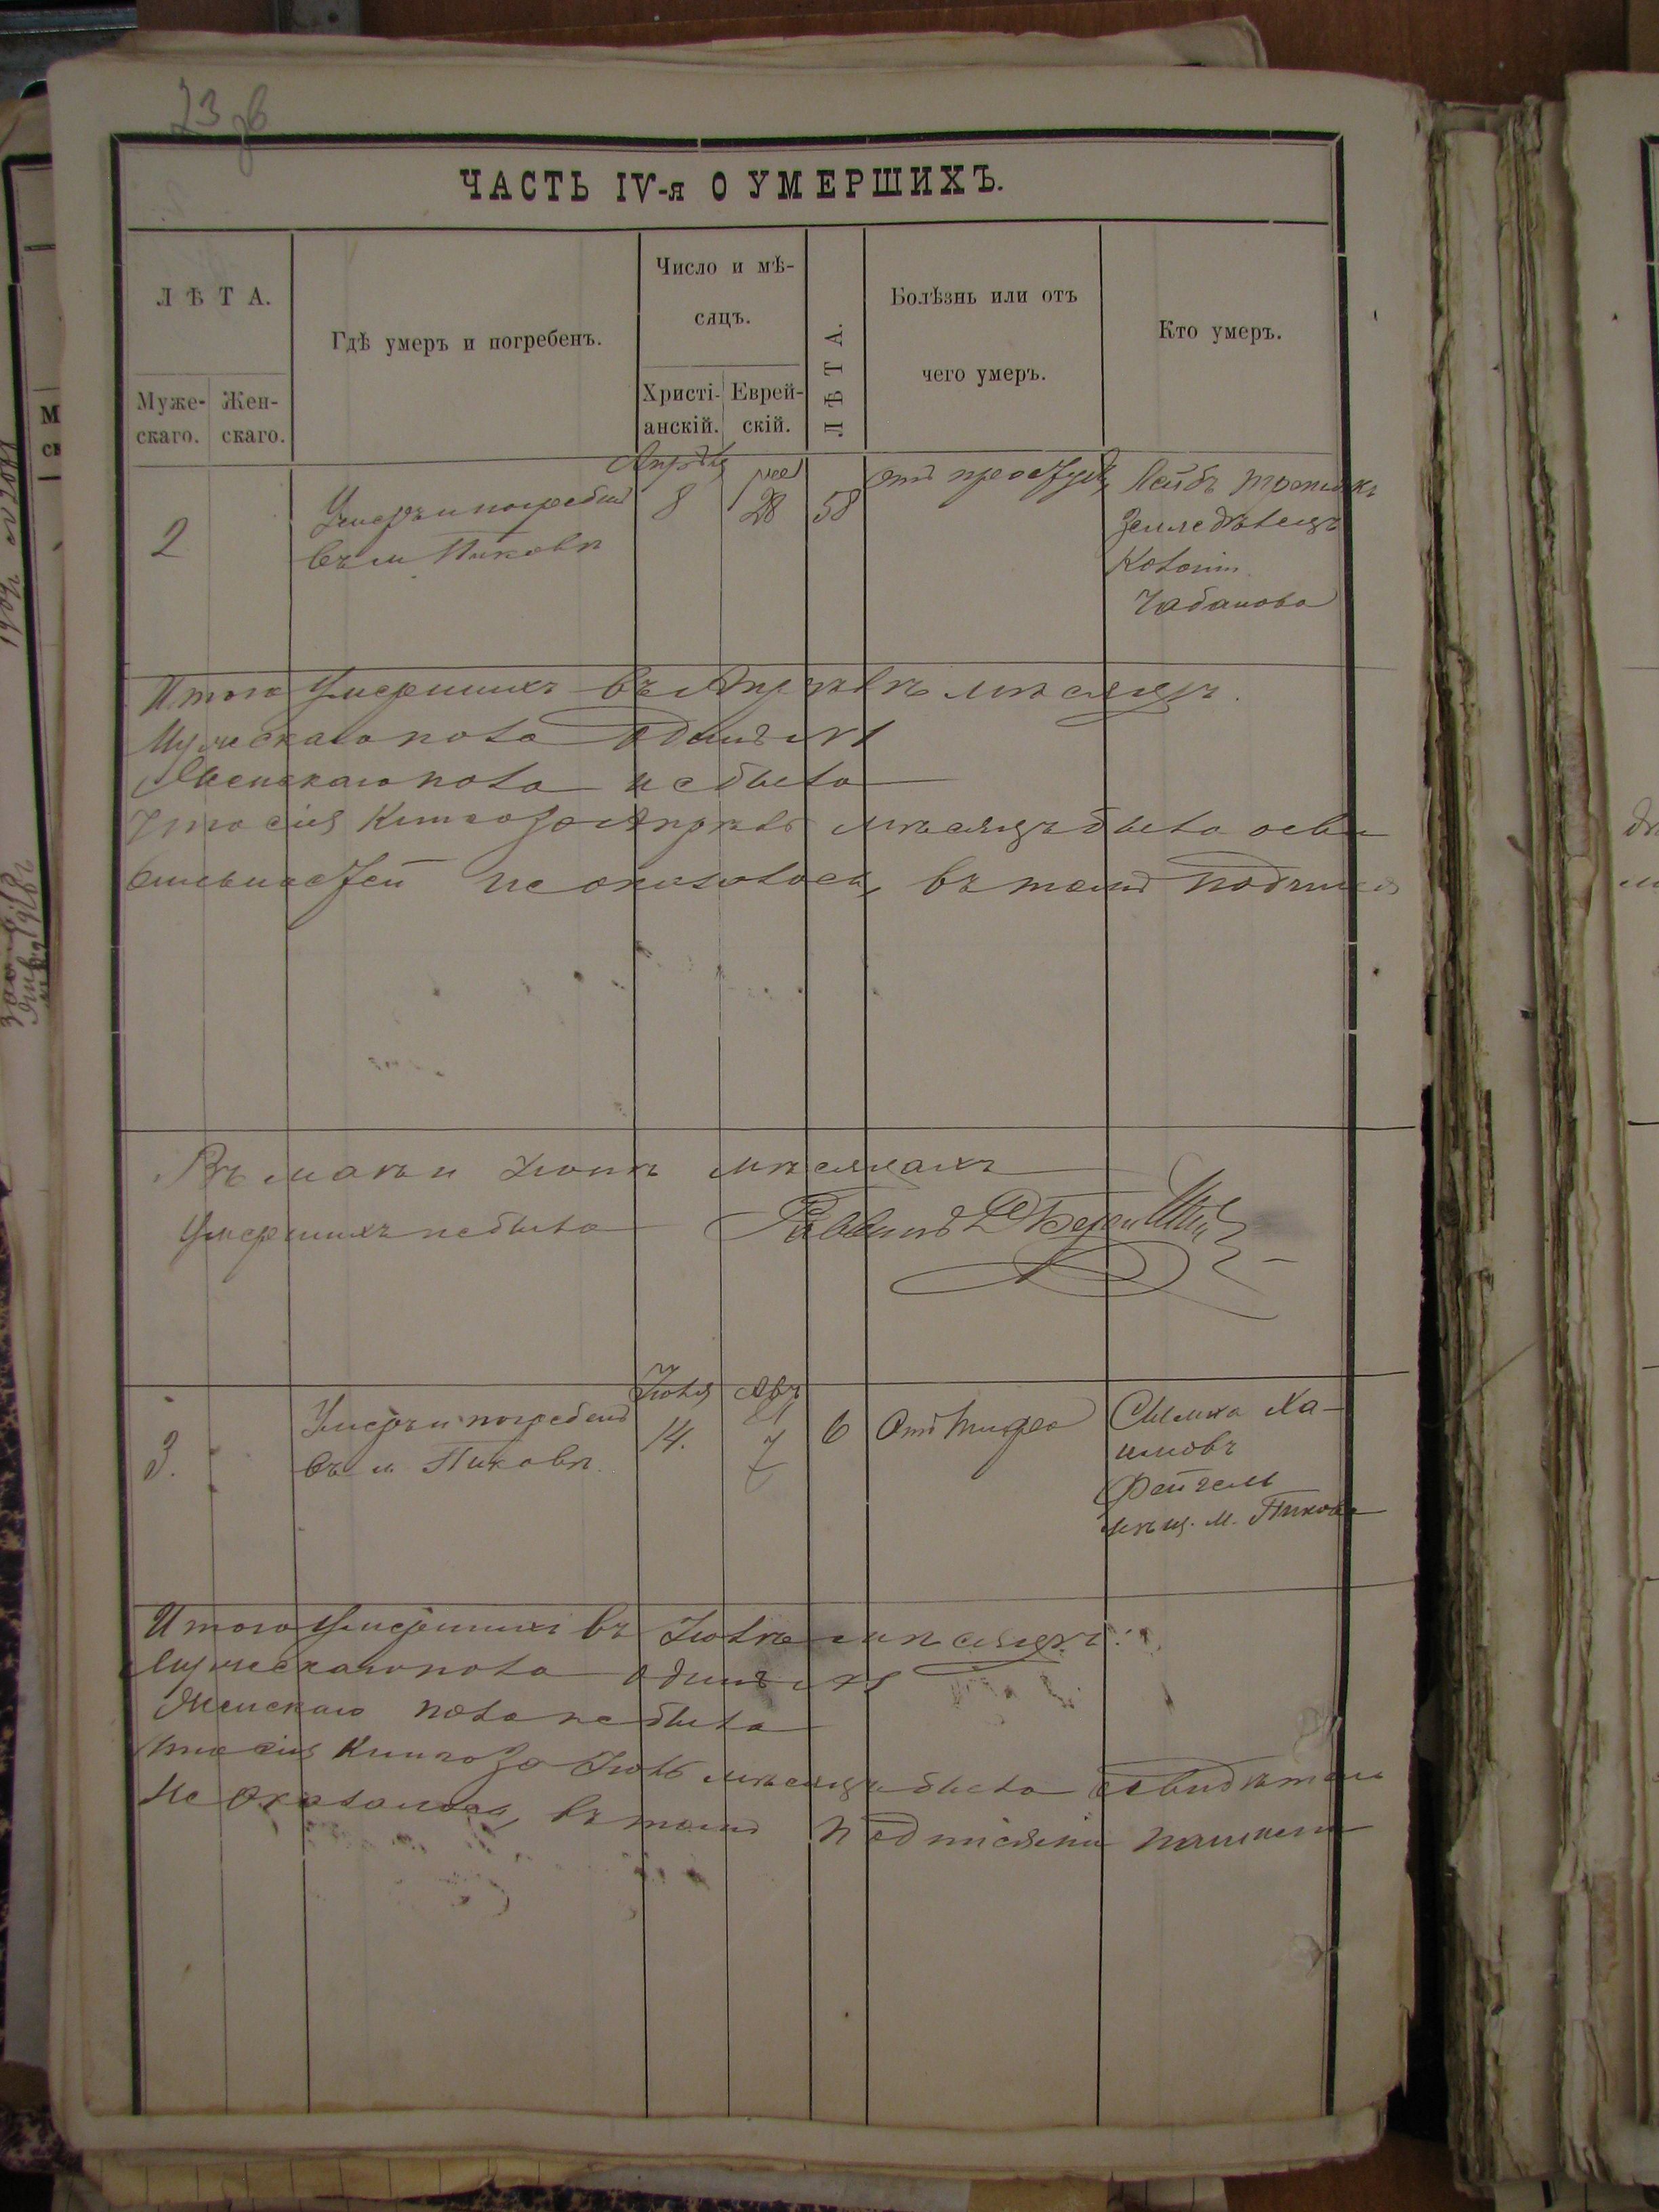 23 об
ЧАСТЬ IV-я О УМЕРШИХЪ.
ЛѢТА.
Муже-
скаго.
Жен-
скаго.
Гдѣ умеръ и погребенъ.
Число и мѣ-
сяцъ.
Христі-
анскій.
Еврей-
скій.
ЛѢТА.
Болѣзнь или отъ
чего умеръ.
Кто умеръ.
2
Умеръ и погребенъ
въ м Пиковѣ
Апрѣля
8
28
58
отъ простуды
Лейбъ
Земледѣлецъ
Колоніи
Чабанова
Итого Умершихъ въ Апрѣлѣ мѣсяцѣ.
Мужескаго пола Одинъ №1
Женскаго пола небыло
Что сія Книга за Апрѣль мѣсяцъ было
неоказалось, въ томъ
Въ маѣ и Іюнѣ мѣсяцахъ
Умершихъ небыло
Раввинъ
3.
Умеръ и погребенъ
въ м Пиковѣ.
Іюля
14.
Авъ
7
6
Отъ тифа
Шлема Ха-
имовъ
мѣщ. м. Пикова
Итого Умершихъ въ Іюлѣ мѣсяцѣ:
Мужескаго пола одинъ №1
Женскаго пола небыло
что сія Книга за Іюль мѣсяцъ было
Не оказалось, въ томъ